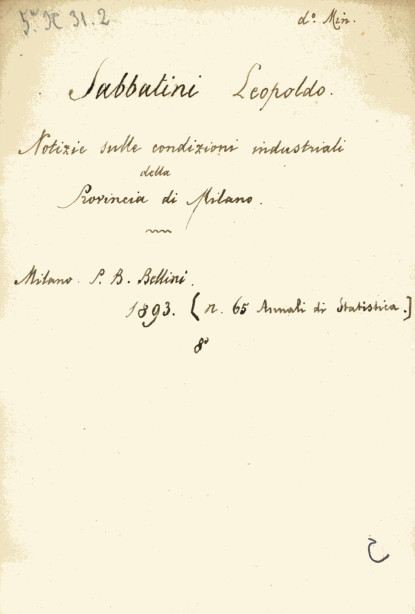 5. 31.2
d.º Min.
Sabbatini Leopoldo.
Notizie sulle condizioni industriali
della
Provincia di Milano.
Milano. P. B. Bellini.
1893. (n. 65 Annali di Statistica.]
8º